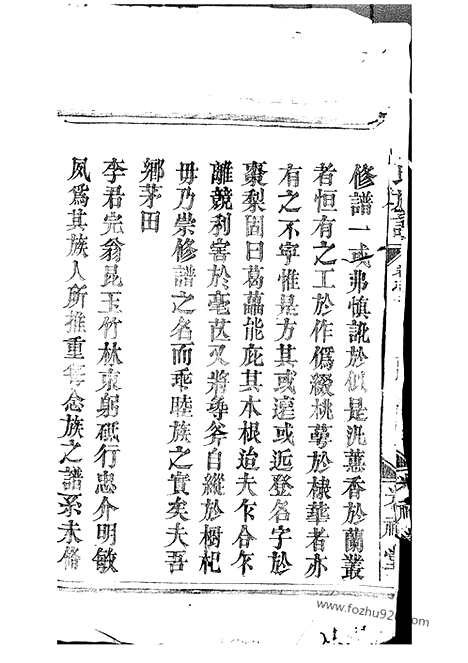 修譜一或弗慎訛於似是汎蕙香於蘭叢
者恒有之工於作僞綴桃蕚於棣華者亦
有之不寧惟是方其或遠或近登名字於
棗梨固曰葛藟能庇其本根迨夫乍合乍
離競利害於毫芒又將尋斧自縱於樹杞
毋乃崇修譜之名而乖睦族之實矣夫吾
鄉茅田
李君完翁昆玉竹林束躬砥行忠介明敏
夙爲其族人所推重 念族之譜系未脩
氏族譜
堂
www.fozhu920.com